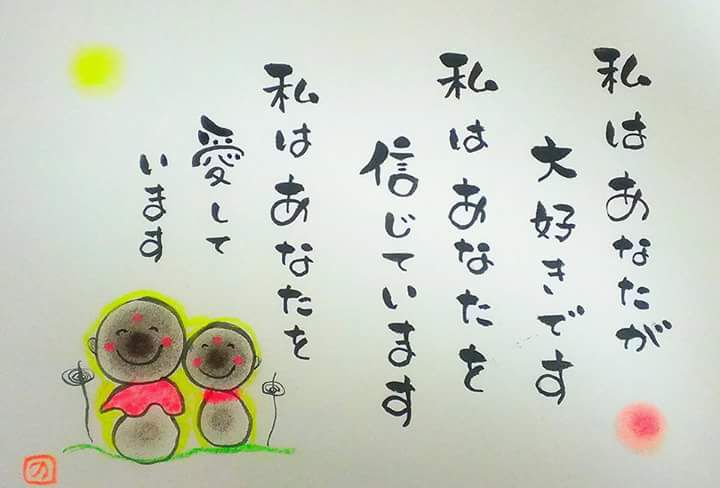 私はあなたが
大好きです
私はあなたを
信じています
私はあなたを
愛して
います
の